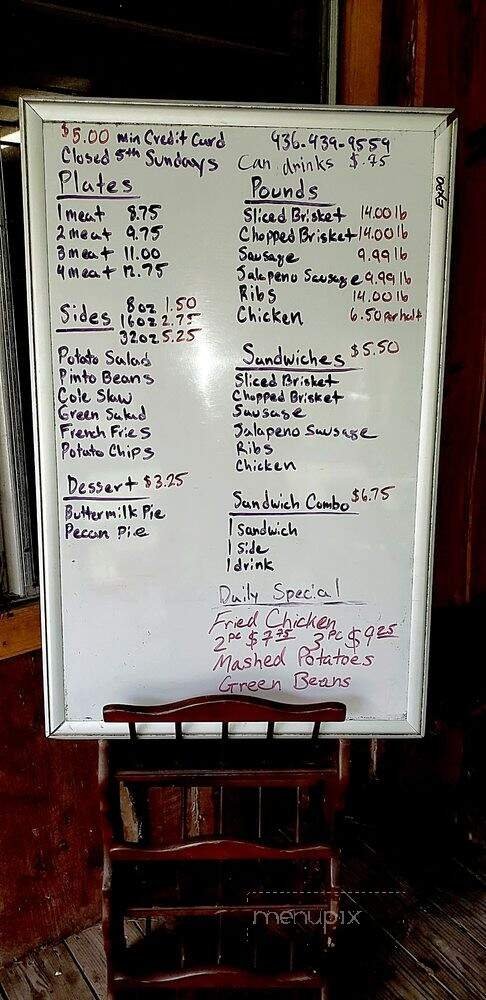 $5.00 min Credit Card
Closed 5th Sundays
Plates
1 meat 8.75
2 meat 9.75
3 meat 11.00
4 meat 12.75
Sides
8oz 1.50
16oz 2.75
32oz 5.25
Potato Salad
Pinto Beans
Cole Slaw
Green Salad
French Fries
Potato Chips
Dessert $3.25
Buttermilk Pie
Pecan Pie
936-439-9559
Can drinks $.75
Pounds
Sliced Brisket 14.00 lb
Chopped Brisket 14.00 lb
Sausage 9.99 lb
Jalapeno Sausage 9.99 lb
Ribs 14.00 lb
Chicken 6.50 per half
Sandwiches $5.50
Sliced Brisket
Chopped Brisket
Sausage
Jalapeno Sausage
Ribs
Chicken
Sandwich Combo $6.75
1 Sandwich
1 Side
1 drink
Daily Special
Fried Chicken
2 pc $7.75 3 pc $9.25
Mashed Potatoes
Green Beans
EXPO
menupix